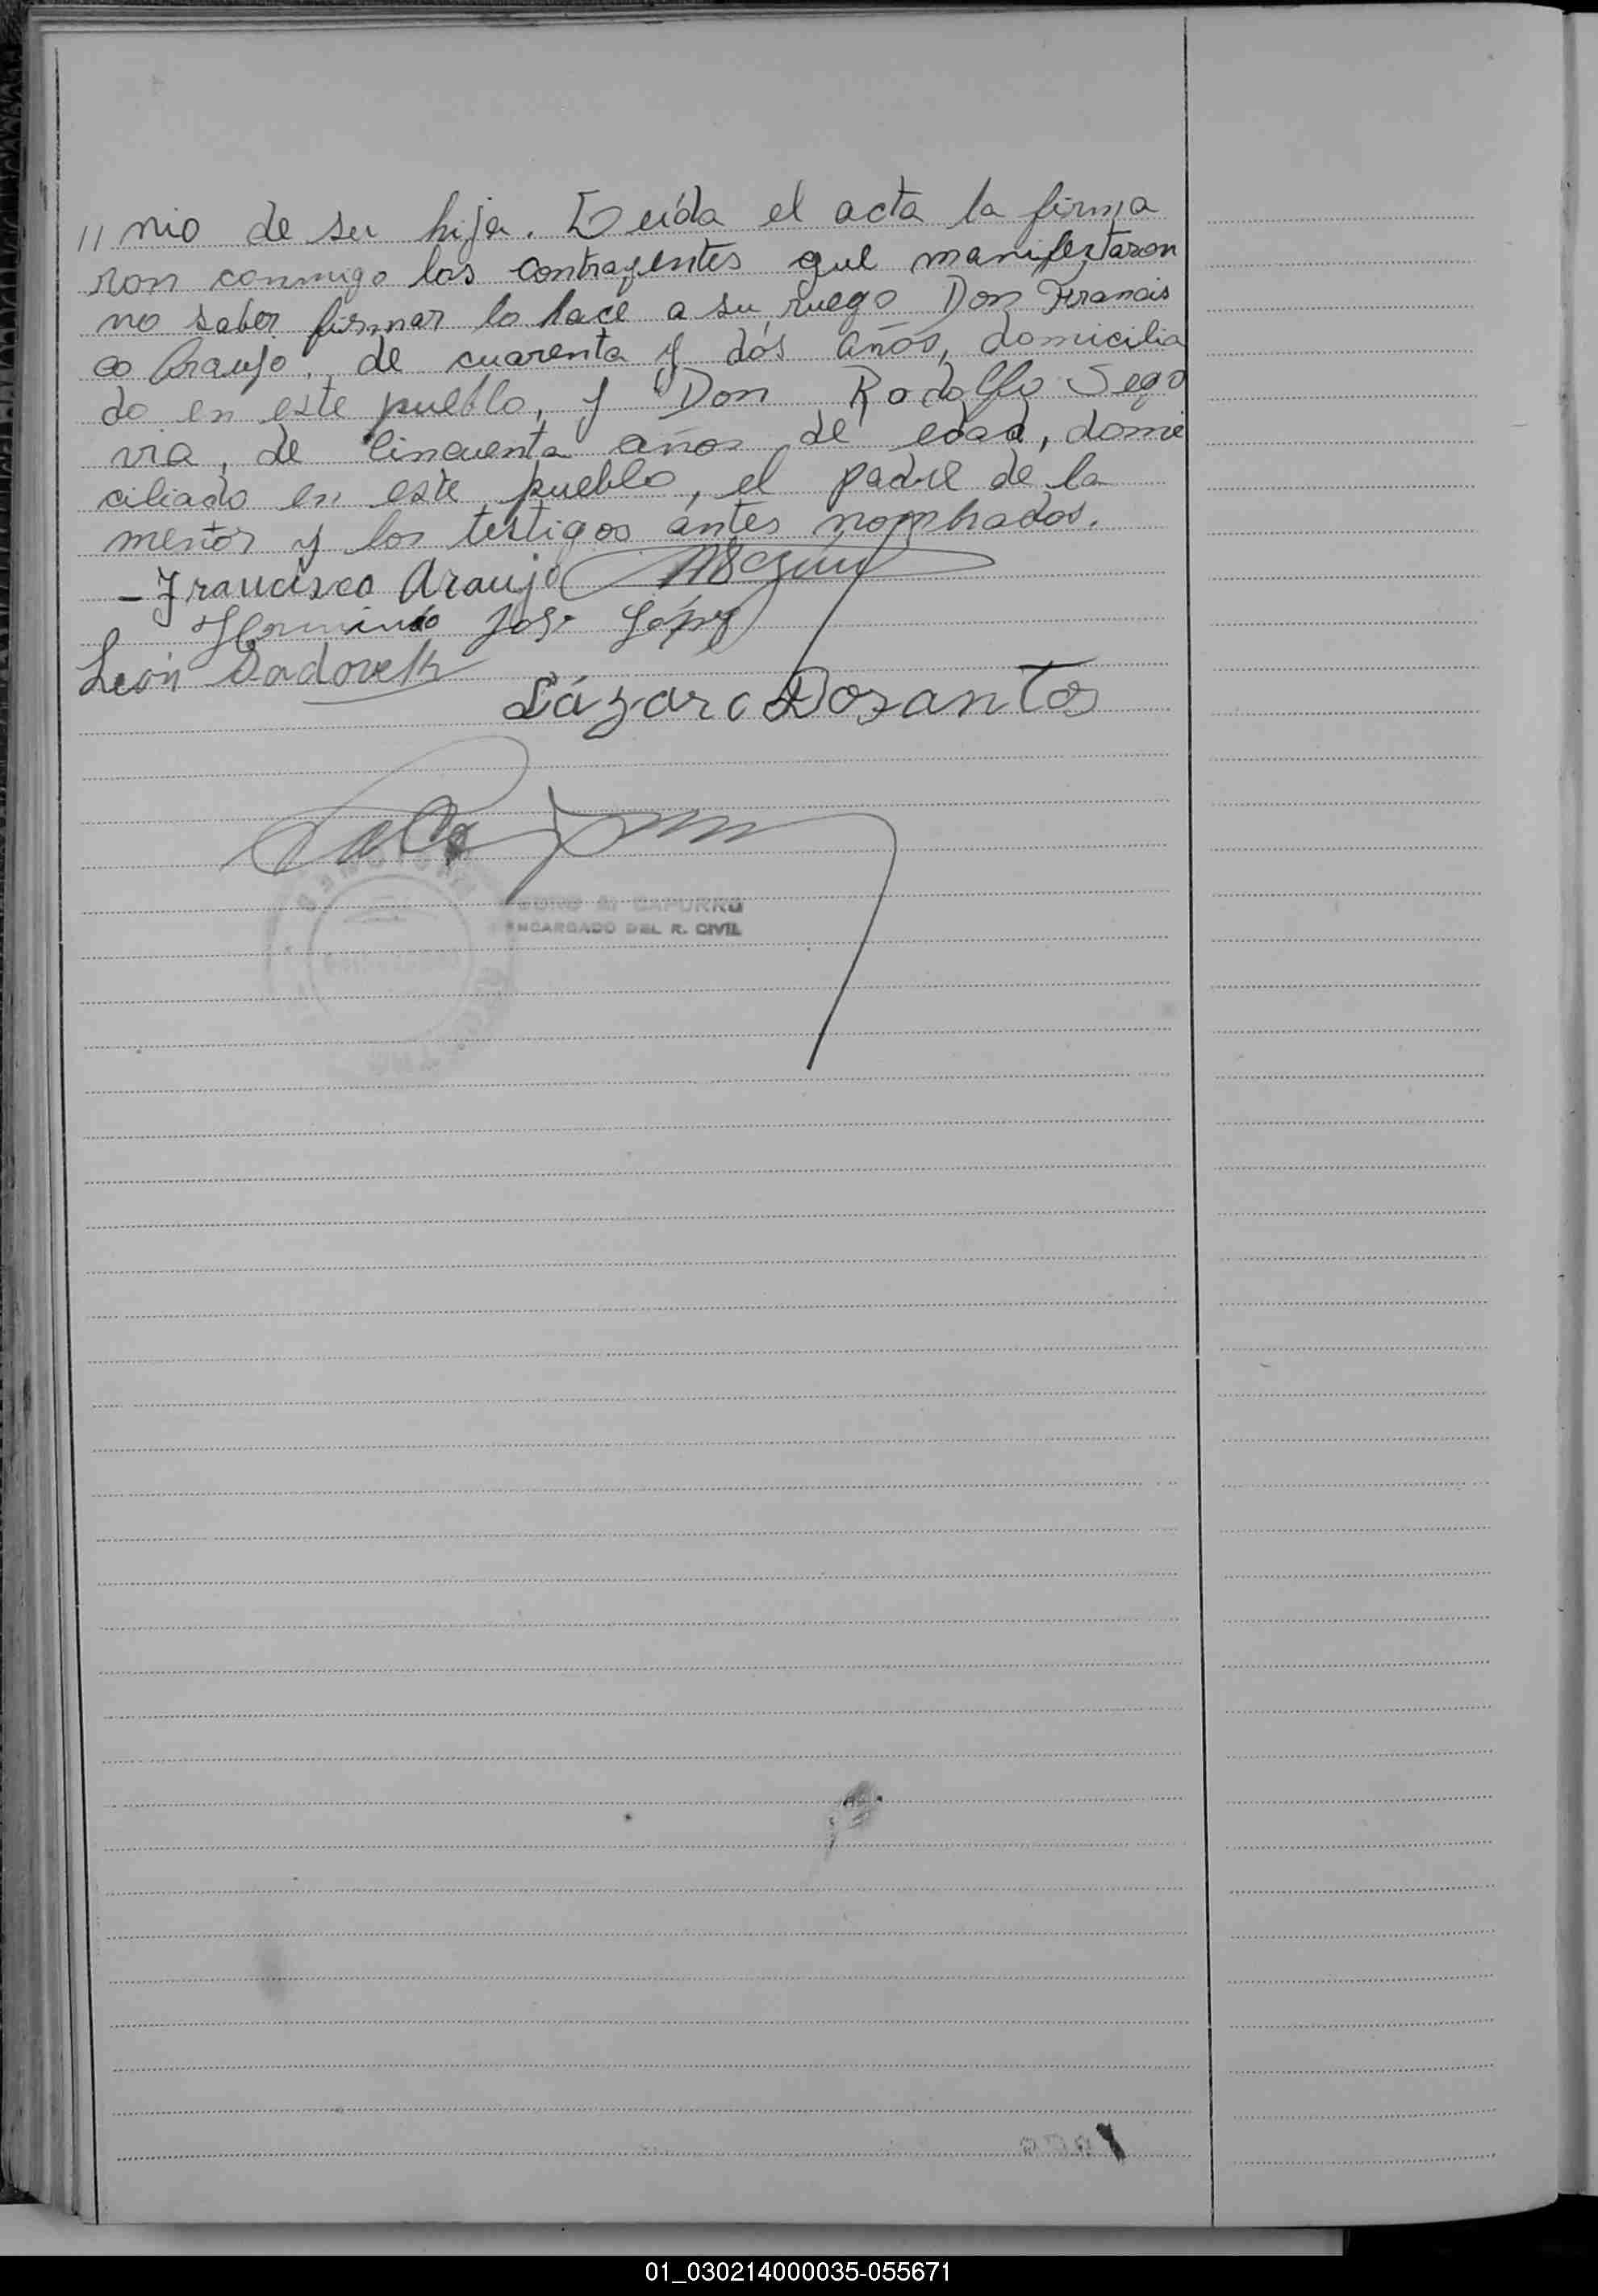 // nio de su hija. Leída el acta la firma
ron conmigo los contrayentes que manifestaron
no saber firmar lo hace a su ruego Don Francis
co Araujo, de cuarenta y dós años, domicilia
do en este pueblo, y Don Rodolfo Sego
via, de cincuenta años de edad, domi
ciliado en este pueblo, el padre de la
menor y los testigos ántes nombrados.
- Francisco Araujo
Herminio José López
León Sadovell
Lázaro Dosantos
CAPURRO
ENCARGADO DEL R. CIVIL
01_030214000035-055671